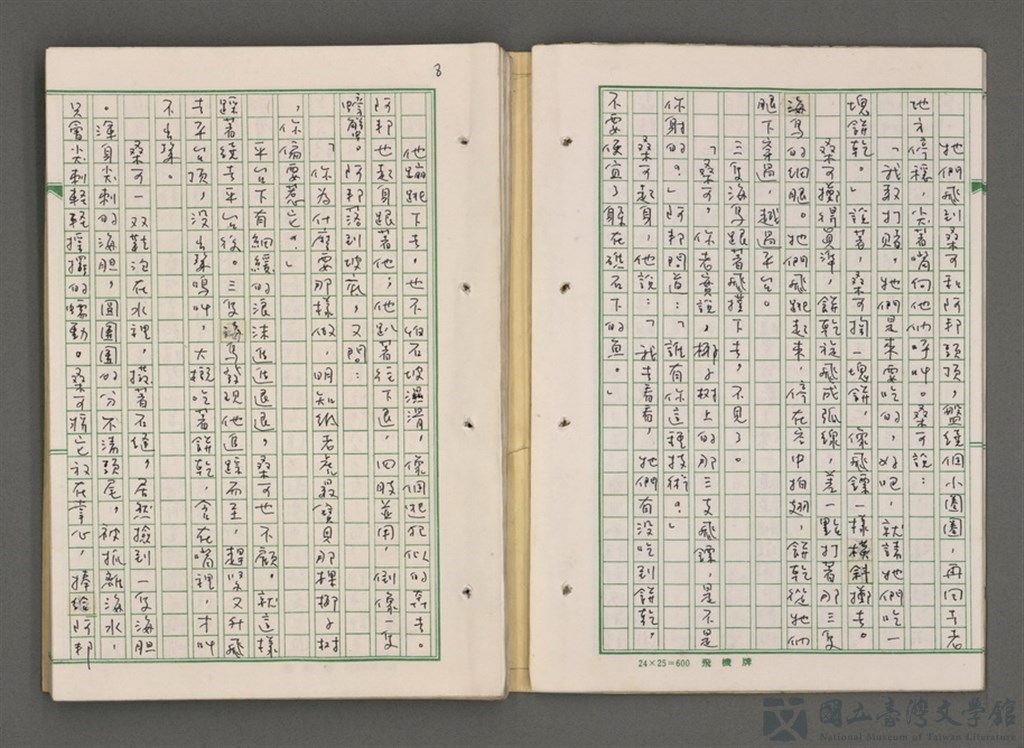 牠們飛到桑可和阿邦頭頂，盤繞個小圈圈，再回去老
地方停棲，尖著嘴向他們呼叫。桑可說：
「我敢打賭，牠們是來要吃的，好吧，就請牠們吃一
塊餅乾。」說著，桑可掏一塊餅，像飛鏢一樣橫斜擲去。
桑可擲得真準，餅乾旋飛成弧線，差一點打著那三隻
海鳥的細腿。牠們飛跳起來，停在空中拍翅，餅乾從牠們
腿下穿過，越過平台。
三隻海鳥跟著飛撲下去，不見了。
「桑可，你老實說，椰子樹上的那三支飛鏢，是不是
你射的。」阿邦問道：「誰有你這種技術。」
桑可起身，他說：「我去看看，牠們有沒吃到餅乾，
不要便宜了躲在礁石下的魚。」
24×25=600 飛機牌
8
他蹦跳下去，也不怕石坡濕滑，像個逃犯似的莽去。
阿邦也起身跟著他；他趴著往下退，四肢並用，倒像一隻
螃蟹。阿邦落到坡底，又問：
「你為什麼要那樣做，明知紙老虎最寶貝那棵椰子樹
，你偏要惹它。」
平台下有細緩的浪沫進進退退，桑可也不顧。就這樣
踩著繞去平台後。三隻海鳥發現他進蹤而至，趕緊又升飛
去平台頂，沒出聲鳴叫，大概吃著餅乾，含在嘴裡，才叫
不出聲。
桑可一双鞋泡在水裡，摸著石縫，居然撿到一隻海胆
。渾身尖刺的海胆，圓圓團的分不清頭尾，被抓離海水，
只會尖刺輕輕搖擺的蠕動。桑可將它放在掌心，捧給阿邦
國立臺灣文學館
National Museum of Taiwan Literature